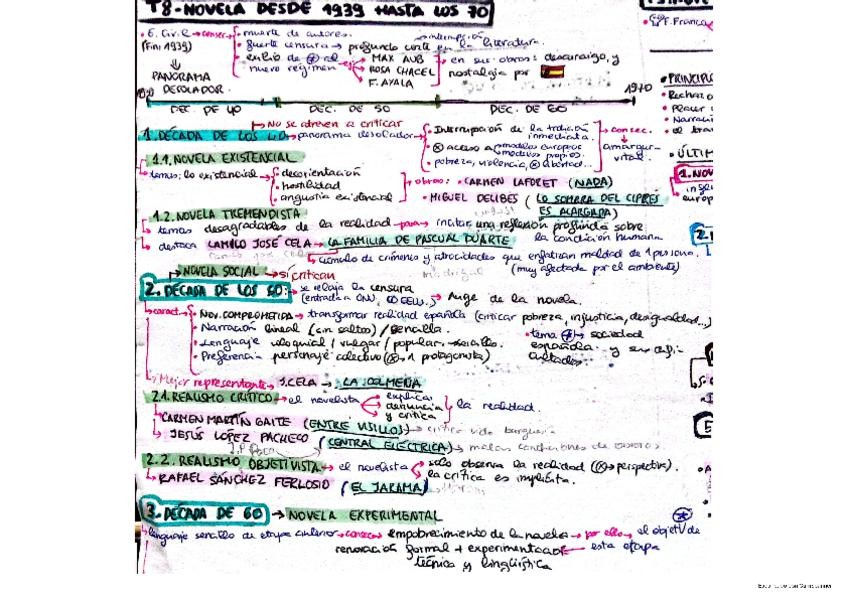 T8-NOVELA DESDE 1939 HASTA LOS 70
G. Civil → consec. • muerte de autores.
(Fin: 1939) • fuerte censura → profundo corte en la literatura.
interrupción
nuevo régimen → MAX AUB
ROSA CHACEL
F. AYALA
en sus obras: desarraigo, y
nostalgia por
PANORAMA
DESOLADOR.
1970
DEC. DE 40 DEC. DE 50 DEC. DE 60
→ No se atreven a criticar
1. DÉCADA DE LOS 40 → panorama desolador
• Interrupción de la tradición
inmediata.
acceso a modelos europeos
modelos propios.
• pobreza, violencia, libertad...
→ consec.
amargura
vital.
1.1. NOVELA EXISTENCIAL
temas: lo existencial → • desorientación
• hostilidad
• angustia existencial
→ obras: • CARMEN LAFORET (NADA)
• MIGUEL DELIBES (LA SOMBRA DEL CIPRÉS
ES ALARGADA)
1.2. NOVELA TREMENDISTA
→ temas desagradables de la realidad → para → incitar una reflexión profunda sobre
la condición humana
→ destaca CAMILO JOSÉ CELA → LA FAMILIA DE PASCUAL DUARTE
→ cúmulo de crímenes y atrocidades que enfatizan maldad de 1 persona.
(muy afectada por el ambiente)
→ NOVELA SOCIAL → sí critican
2. DÉCADA DE LOS 50: → se relaja la censura
(entrada a ONU, EEUU) → Auge de la novela.
caract. • Nov. COMPROMETIDA → transformar realidad española (criticar pobreza, injusticia, desigualdad...)
• Narración lineal (sin saltos) / sencilla.
• Lenguaje coloquial / vulgar / popular. → sencillo.
• Preferencia personaje colectivo (1 protagonista)
• tema → sociedad
española y sus
→ Mejor representante → J. CELA → LA COLMENA
2.1. REALISMO CRÍTICO → el novelista → explica
denuncia
y critica
la realidad.
→ CARMEN MARTÍN GAITE (ENTRE VISILLOS) → critica vida burguesa
→ JESÚS LÓPEZ PACHECO (CENTRAL ELÉCTRICA) → malas condiciones de obreros
2.2. REALISMO OBJETIVISTA → el novelista → solo observa la realidad (perspectiva).
la crítica es implícita.
→ RAFAEL SÁNCHEZ FERLOSIO (EL JARAMA)
3. DÉCADA DE 60 → NOVELA EXPERIMENTAL
→ lenguaje sencillo de etapa anterior → consec. → empobrecimiento de la novela → por ello → el objetivo de
esta etapa
renovación formal + experimentación
técnica y lingüística
F. Franca
• PRINCIPIO
• Rechazo
• Narraci
• ÚLTIM
1. NOV
europ